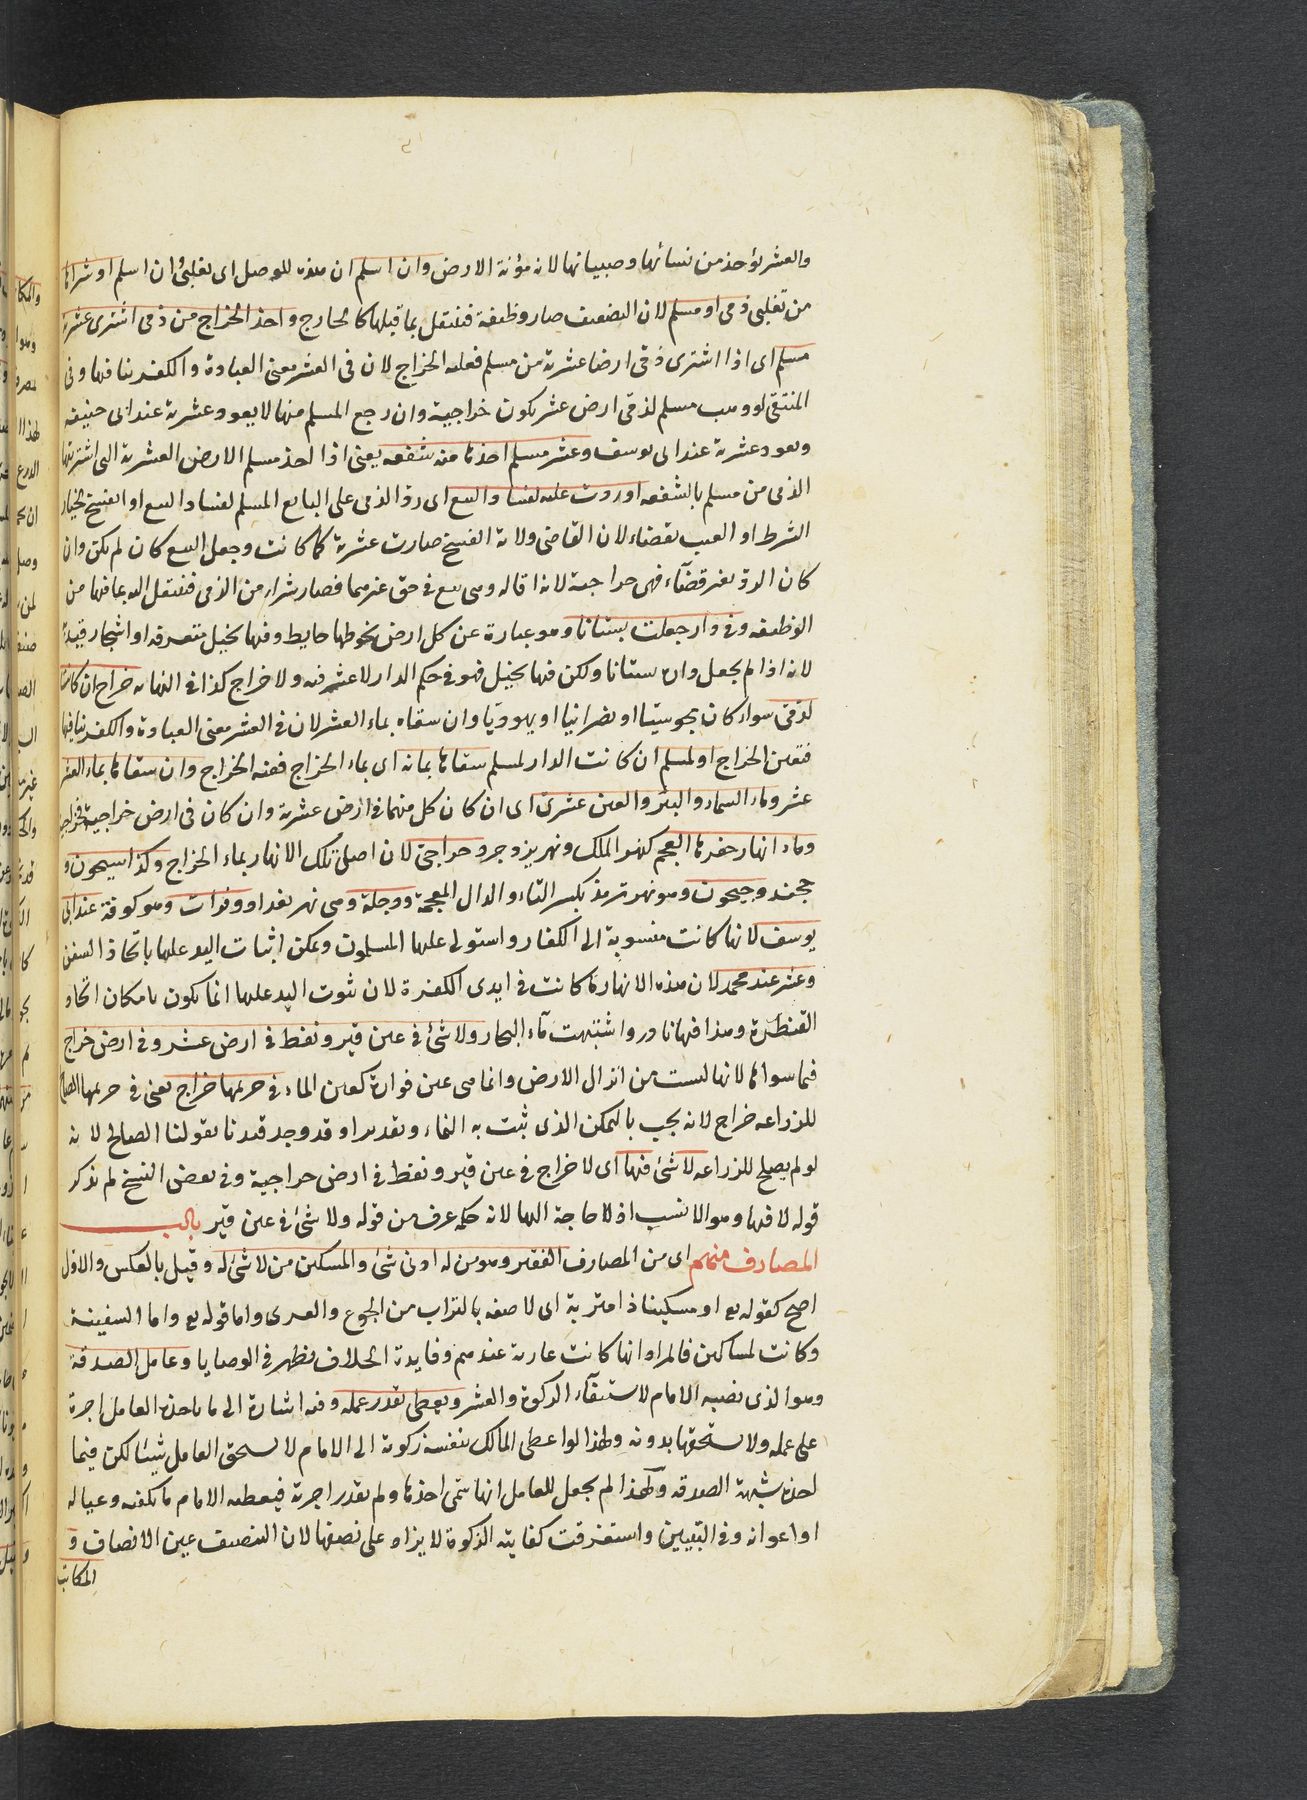 والعشر يؤخذ من نسائها وصبيانها لانه مؤنة الارض وان اسلم ان هذه للوصل اى تغلبىّ ان اسلم او شراها
من تغلبى ذمى او مسلم لان التضعيف صار وظيفة فينتقل بما قبلها كالخارج واخذ الخراج من ذمى اشترى عشرية
مسلم اى اذا اشترى ذمّى ارضا عشرية من مسلم فعليه الخراج لان فى العشر معنى العبادة والكفر ينافيها وفى
المنتقى لو وهب مسلم لذمّى ارض عشر يكون خراجية وان رجع المسلم منها لا يعود عشرية عند ابى حنيفه
ويعود عشرية عند ابى يوسف وعشر مسلم اخذها منه شفعه يعنى اذا اخذ مسلم الارض العشرية التى اشتريها
الذمى من مسلم بالشفعه او ردت عليه لفساد البيع اى ردّ الذمى على البايع المسلم لفساد البيع او الفسخ لخيار
الشرط او العيب بقضاء لان القاضى ولاية الفسخ صارت عشرية كما كانت وجعل البيع كان لم يكن وان
كان الردّ بغير قضآء فهى خراجية لانه اقاله وهى بيع فى حق غيرهما فصار شراء من الذمى فينتقل اليه بما فيها من
الوظيفه وفى دار جعلت بستانا وهو عبارة عن كل ارض يحوطها حايط وفيها نخيل متفرقه او اشجار قيد به
لانه اذا لم يجعل داره بستانا ولكن فيها نخيل فهو فى حكم الدار لا عشر فيه ولا خراج كذا فى النهايه خراج ان كانت
لذمّى سواء كان مجوسيّا او نصرانيا او يهوديّا وان سقاه بماء العشر لان فى العشر معنى العبادة والكفر ينافيها
فتعين الخراج او لمسلم ان كانت الدار لمسلم سقاها بمائه اى بماء الخراج ففيه الخراج وان سقاها بماء العشر
عشر وماء السماء والبئر والعين عشرىّ اى ان كان كل منهما فى ارض عشرية وان كان فى ارض خراجية فخراجى
وماء انهار حفرها العجم كنهر الملك ونهر يزدجرد خراجى لان اصل تلك الانهار بماء الخراج وكذا سيحون و
خجند وجيحون وهو نهر ترمذ بكسر التاء والدال المعجمة ودجلة وهى نهر بغداد وفرات وهو كوفة عند ابى
يوسف لانها كانت منسوبة الى الكفار واستولى عليها المسلمون ويمكن اثبات اليد عليها باتخاذ السفن
وعشر عند محمد لان هذه الانهار ما كانت فى ايدى الكفرة لان ثبوت اليد عليها انما يكون بامكان اتخاذ
القنطرة وهذا فيها نادر واشتبهت ماء البحار ولا شئ فى عين قير ونفط فى ارض عشر وفى ارض خراج
فيما سواها لانها ليست من انزال الارض وانما هى عين فوارة كعين الماء فى حريمها خراج يعنى فى حريمها الصالح
للزراعه خراج لانه يجب بالتمكن الذى ثبت به النماء وتقديرا وقد وجد قيدنا بقولنا الصالح لانه
لو لم يصلح للزراعه لا شئ فيها اى لا خراج فى عين قير ونفط فى ارض خراجية وفى بعض النسخ لم يذكر
قوله لا فيها وهو الانسب اذ لا حاجة اليها لانه حكمه عرف من قوله ولا شئ فى عين قير باب
المصارف منهم اى من المصارف الفقير وهو من له ادنى شئ والمسكين من لا شئ له وقيل بالعكس والاوّل
اصح كقوله تع او مسكينا ذا متربة اى لاصقه بالتراب من الجوع والعرى واما قوله تع واما السفينة
وكانت لمساكين فالمراد انها كانت عارية عندهم وفايدة الخلاف يظهر فى الوصايا وعامل الصدقة
وهو الذى نصبه الامام لاستيفآء الزكوة والعشر ويعطى بقدر عمله وفيه اشارة الى ما ياخذه العامل اجرة
على عمله ولا يستحقها بدونه ولهذا لو اعطى المالك بنفسه زكوته الى الامام لا يستحق العامل شيئا لكن فيما
اخذه شبهة الصدقه ولهذا لم يجعل للعامل الهاشمى اخذها ولم يقدر اجرته فيعطيه الامام ما يكفيه وعياله
او اعوانه وفى التبيين واستغرقت كفايته الزكوة لا يزاد على نصفها لان التنصيف عين الانصاف و
المكاتب